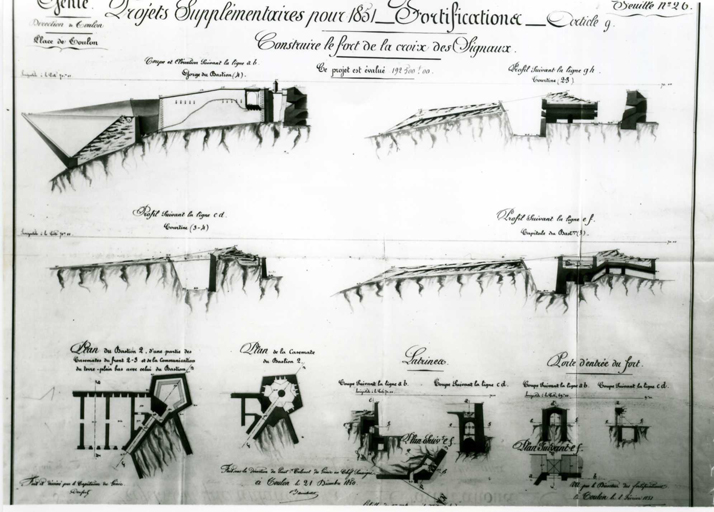 Génie. Projets Supplémentaires pour 1851 _ Fortifications _ Article 9.
Feuille n° 26.
Direction de Toulon
Place de Toulon
Construire le fort de la croix des Signaux.
Ce projet est évalué 192.500 f. 00.
Coupe et élévation suivant la ligne a b.
Gorge du Bastion (4).
Profil suivant la ligne g h.
Courtine (2-3)
Profil suivant la ligne c d.
Courtine (3-4)
Profil suivant la ligne e f.
Capitale du Bast.on (3).
Plan du Bastion 2, d'une partie des
Casemates du front 2-3 et de la Communication
du terre-plein bas avec celui du Bastion
Plan de la Casemate
du Bastion 2.
Latrines.
Coupe suivant la ligne a b.
Coupe suivant la ligne c d.
Plan suiv.t e f.
Porte d'entrée du fort.
Coupe suivant la ligne a b.
Coupe suivant la ligne c d.
Plan suivant e f.
Fait et dessiné par le Capitaine du Génie
Fait sous la Direction du Lieut.t Colonel du Génie en Chef
à Toulon le 21 Décembre 1850
Vu par le Directeur des fortifications
à Toulon le